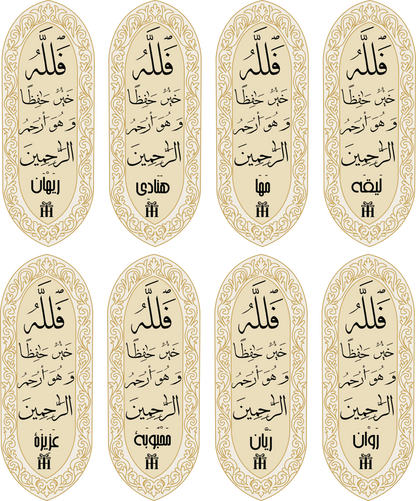 فَاللَّهُ
خَيْرٌ حَافِظًا
وَهُوَ أَرْحَمُ
الرَّاحِمِينَ
ليقه
فَاللَّهُ
خَيْرٌ حَافِظًا
وَهُوَ أَرْحَمُ
الرَّاحِمِينَ
مها
فَاللَّهُ
خَيْرٌ حَافِظًا
وَهُوَ أَرْحَمُ
الرَّاحِمِينَ
هنادى
فَاللَّهُ
خَيْرٌ حَافِظًا
وَهُوَ أَرْحَمُ
الرَّاحِمِينَ
ريهان
فَاللَّهُ
خَيْرٌ حَافِظًا
وَهُوَ أَرْحَمُ
الرَّاحِمِينَ
روان
فَاللَّهُ
خَيْرٌ حَافِظًا
وَهُوَ أَرْحَمُ
الرَّاحِمِينَ
ريان
فَاللَّهُ
خَيْرٌ حَافِظًا
وَهُوَ أَرْحَمُ
الرَّاحِمِينَ
محبوبة
فَاللَّهُ
خَيْرٌ حَافِظًا
وَهُوَ أَرْحَمُ
الرَّاحِمِينَ
عزيزة